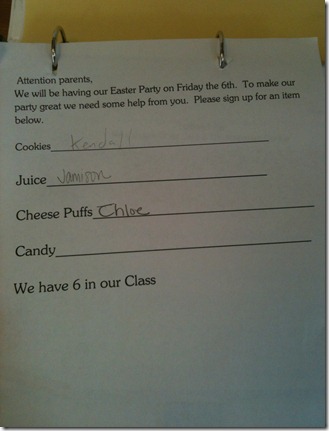 Attention parents,
We will be having our Easter Party on Friday the 6th. To make our
party great we need some help from you. Please sign up for an item
below.
Cookies Kendall
Juice Jamison
Cheese Puffs Chloe
Candy
We have 6 in our Class